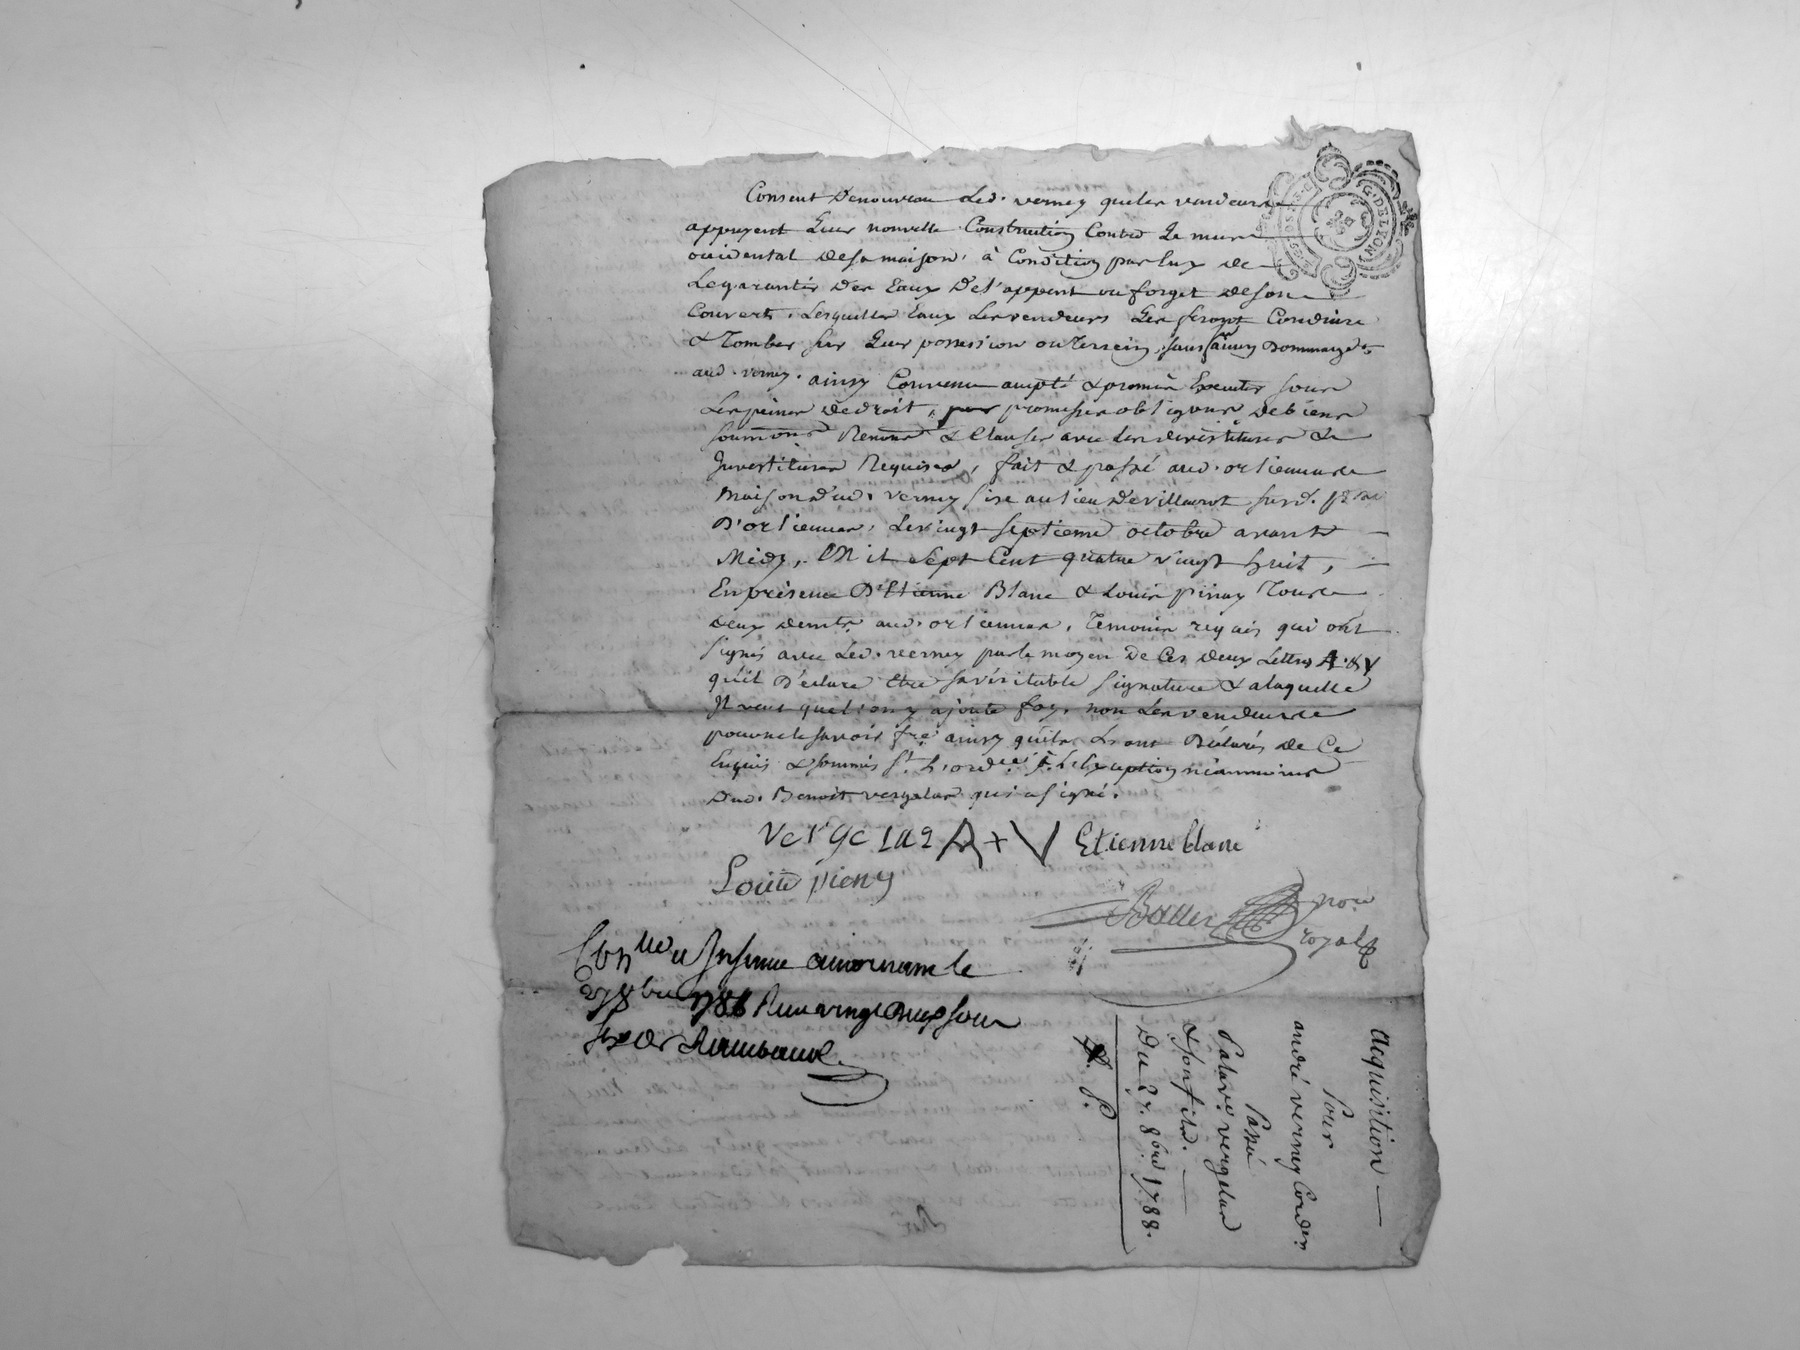 Consent Denouveau Led. verney queles vendeurs
appuyent Leur nouvelle Construction Contre Le mur
occidental desa maison, à Condition par luy de
Legarantir des Eaux De l'appent ou forget deson
Couvert, Lesquelles Eaux Lesvendeurs Les feront Conduire
& Tomber sur Leur possession ou Terrein, sans aucun Dommage
aud. verney. ainsy Convenu accepté & promis Executer sous
Lespeines dedroit, par promesses obligons debiens
soumons Renons & Clauses avec Les devestitures &
Investitures Requises, fait & passé aud. orlienas
Maison dud. verney size aulieu de villedieu surd. psse
D'orlienas, Levingt septieme octobre avant
Midy, Mil Sept Cent quatre vingt huit,
En présence D'Etienne Blanc & Louis pinay Tous
deux demts. aud. orlienas, Temoins requis qui ont
signés avec Led. verney parle moyen de Ces deux Lettres A. & V
qu'il Déclare Etre saveritable signature & alaquelle
Il veut quel'on y ajoute foy, non Lesvendeurs
pour nele savoir fre. ainsy qu'ils L'ont Déclarés de Ce
Enquis & sommés St. L'ordce. à L'Exeption néanmoins
Dud. Benoit vergelas qui a signé.
vergelas A + V Etienne blanc
Louis pieny
Baller nore
royal
Conllé & Insinué amornant le
27 8bre 1788 Reçu vingt
six ds Rambaud
Acquisition
Pour
andré verney Cordr.
Passé
Par ve. vergelas
& son fils.
Du 27. 8bre 1788.